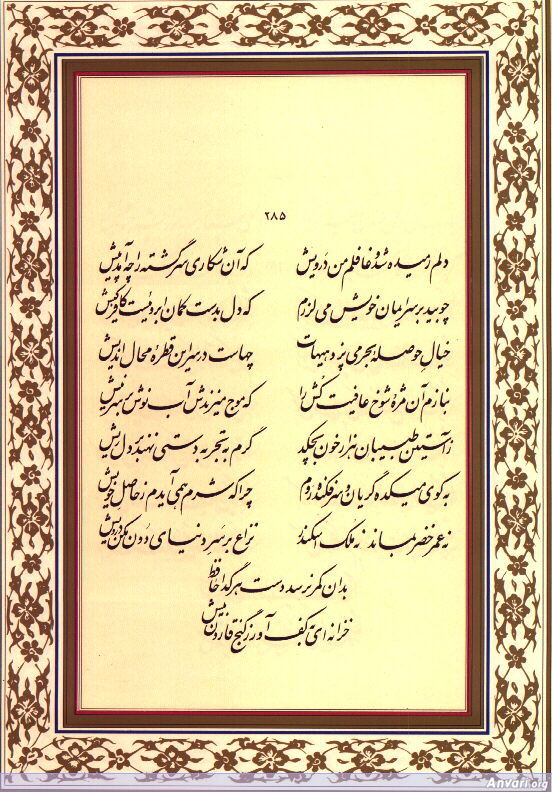 ۲۸۵
دلم رمیده شد و غافلم من درویش که آن شکاری سرگشته را چه آمد پیش
چو بید بر سر ایمان خویش می لرزم که دل بدست کمان ابرویست کافرکیش
خیال حوصلهٔ بحر می پزد هیهات چهاست در سر این قطرهٔ محال اندیش
بنازم آن مژهٔ شوخ عافیت کش را که موج میزندش آب نوش بر سر نیش
ز آستین طبیبان هزار خون بچکد گرم به تجربه دستی نهند بر دل ریش
به کوی میکده گریان و سرفکنده روم چرا که شرم همی آیدم ز حاصل خویش
نه عمر خضر بماند نه ملک اسکندر نزاع بر سر دنیای دون مکن درویش
بدان کمر نرسد دست هر گدا حافظ
خزانه ای به کف آور ز گنج قارون بیش
Anvari.org